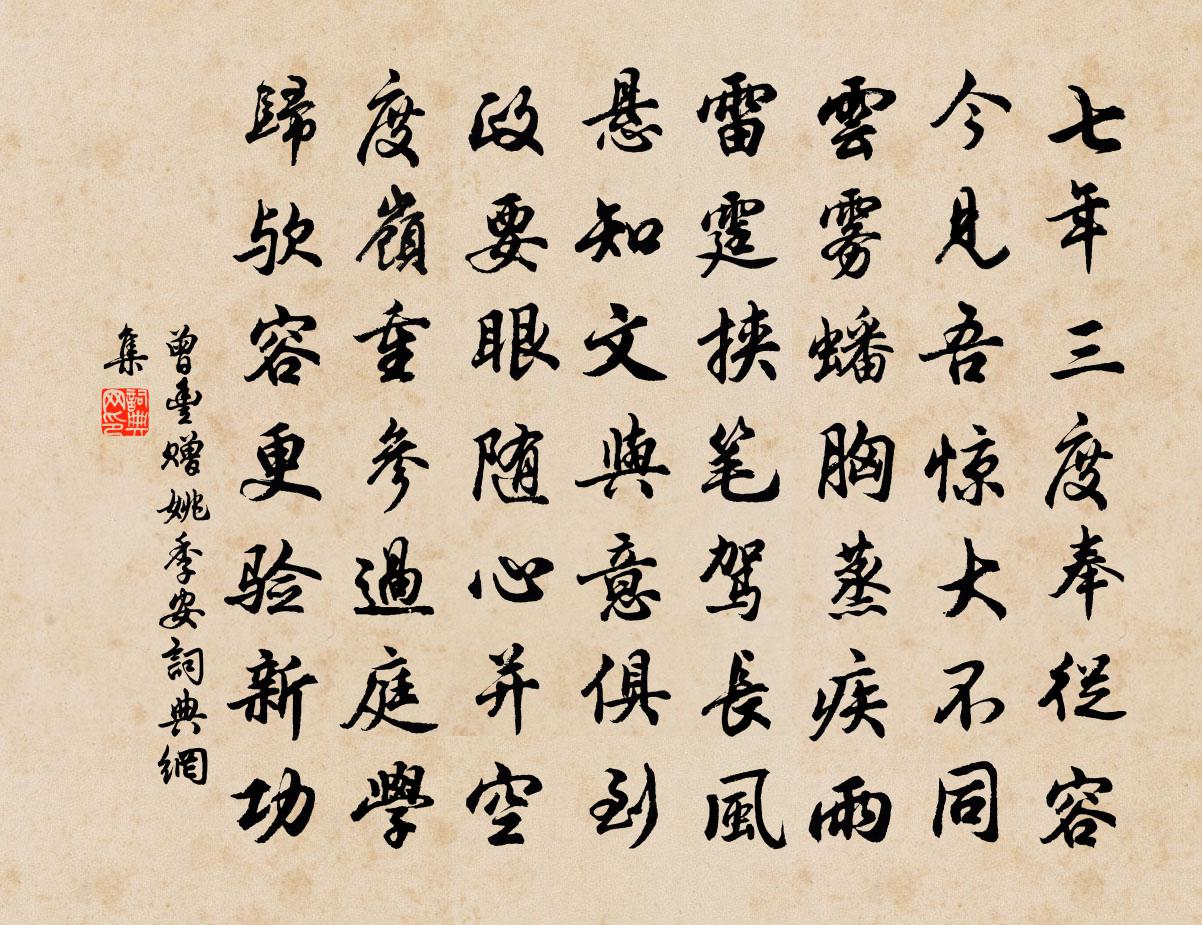 七年三度奉從容
今見吾惊大不同
雲霧蟠胸蒸疾雨
雷霆挾笔駕長風
悬知文與意俱到
政要眼随心并空
度嶺重參過庭學
歸欤容更验新功
曾豊赠姚季安詞典網
集
詞典网印